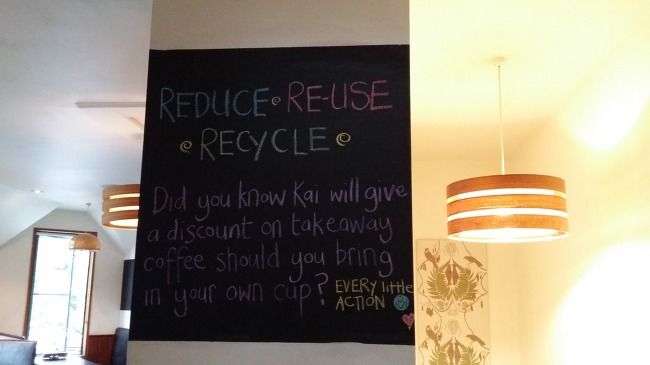 REDUCE RE-USE
RECYCLE
Did you know Kai will give
a discount on takeaway
coffee should you bring
in your own cup? EVERY little
ACTION